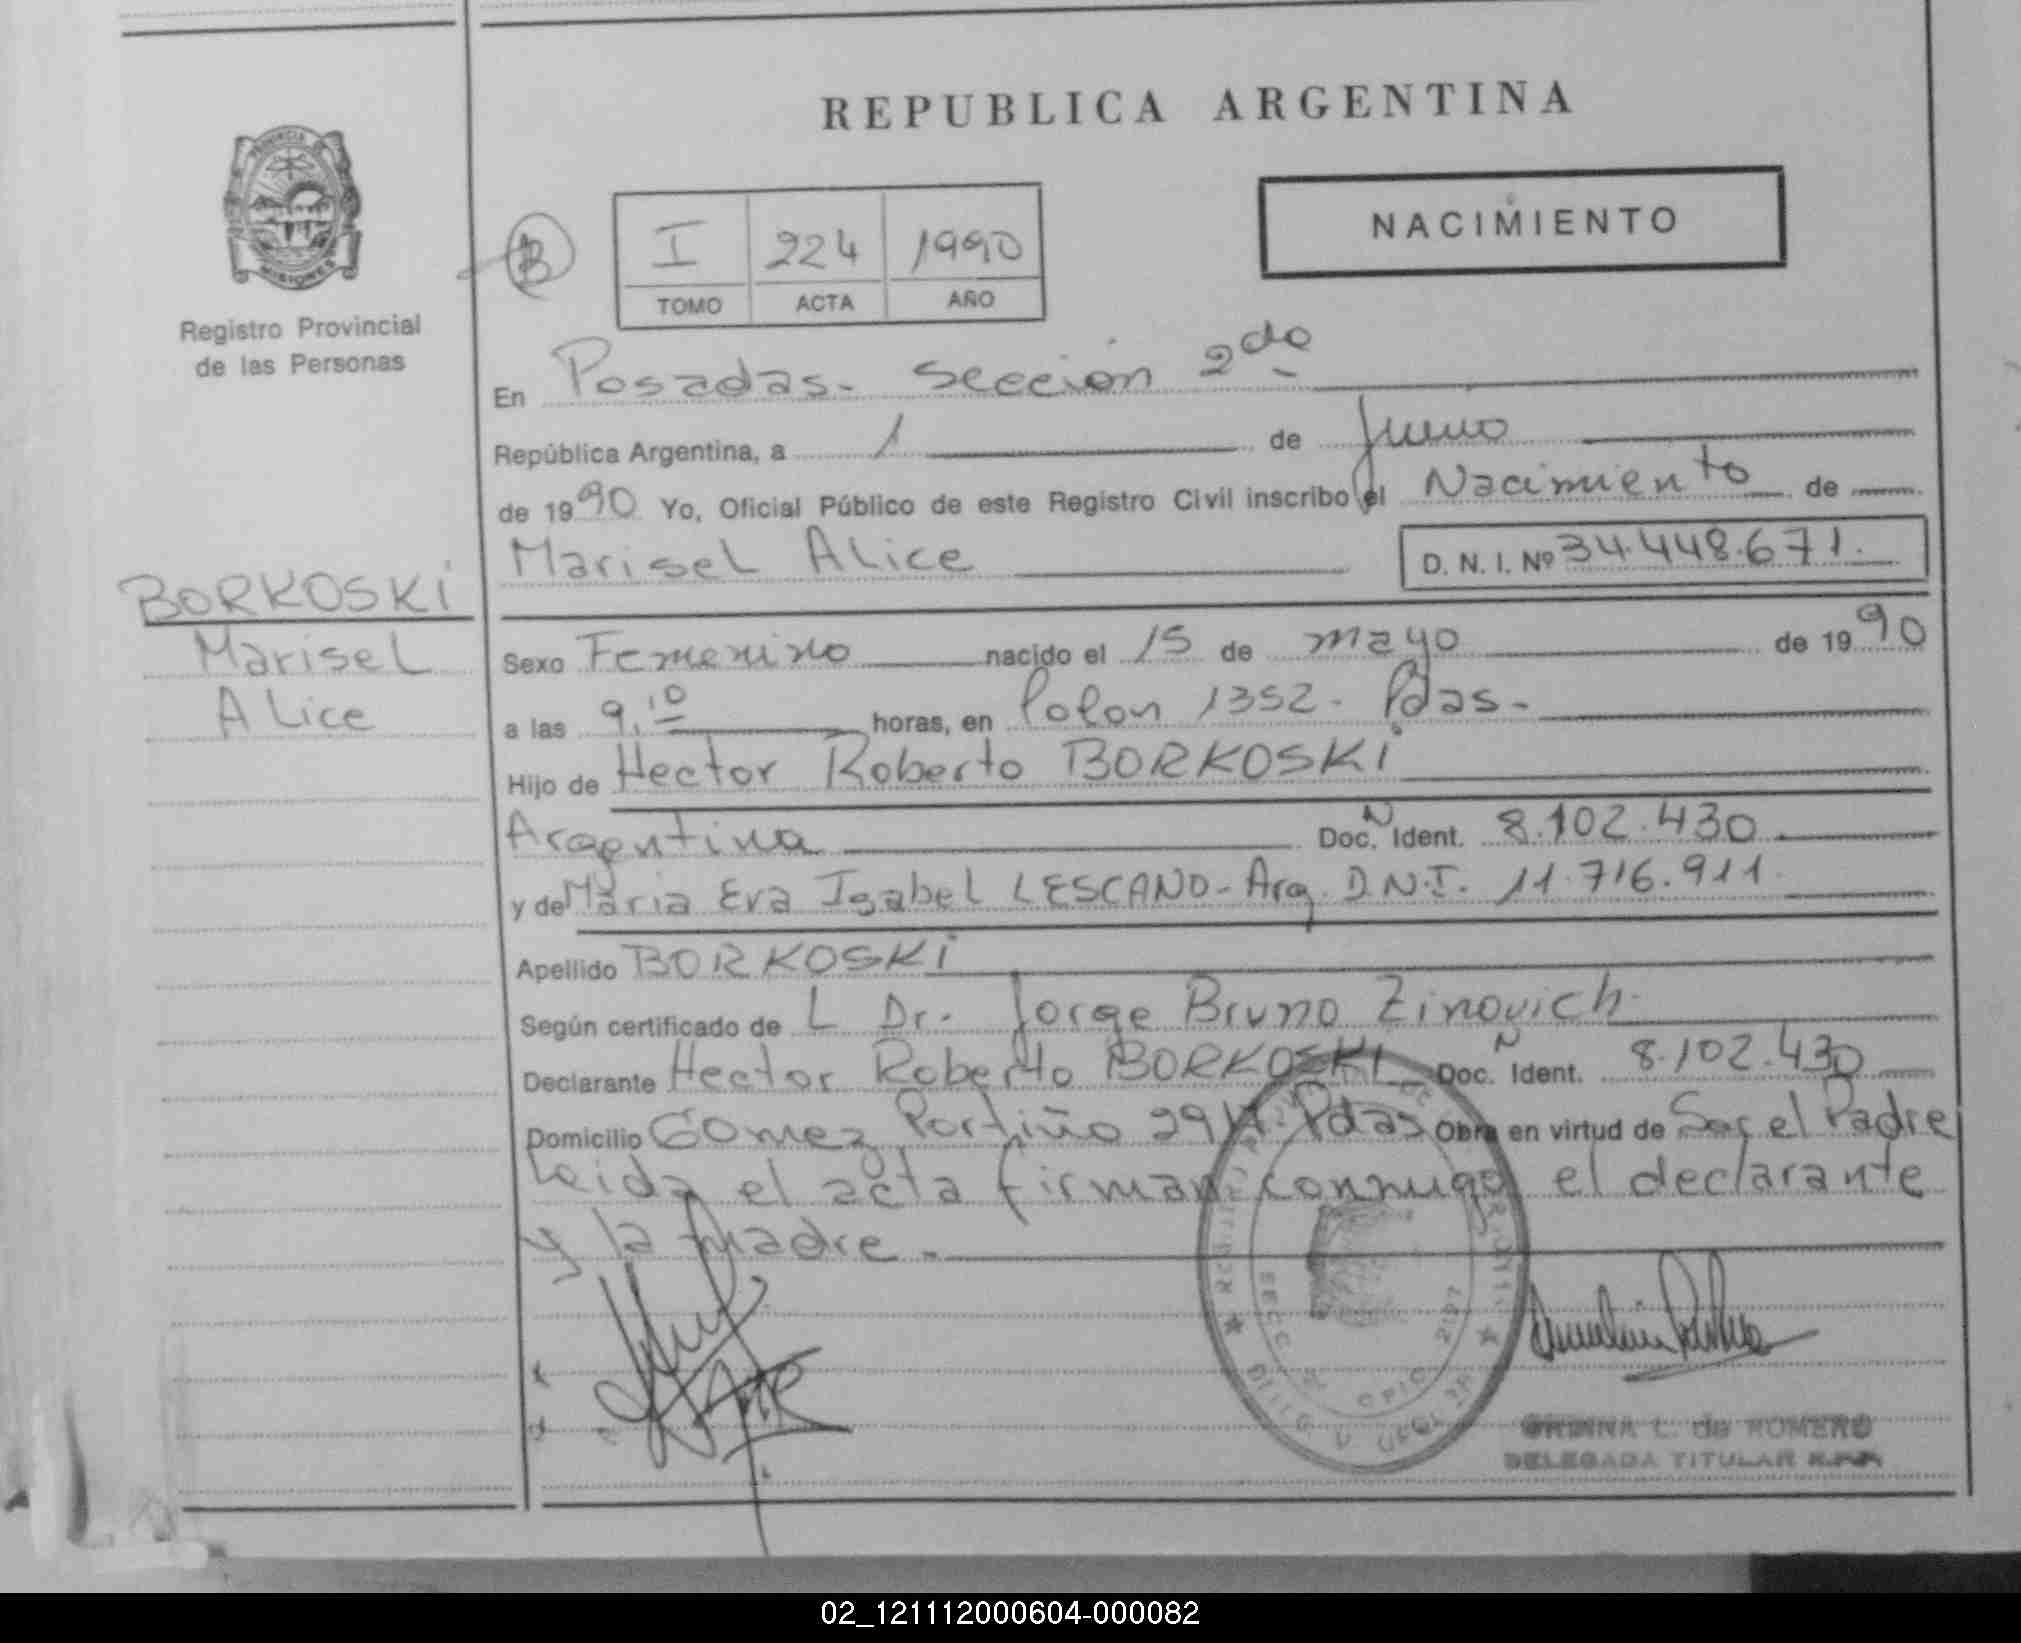 REPUBLICA ARGENTINA
PROVINCIA DE
MISIONES
Registro Provincial
de las Personas
B
I 224 1990
TOMO ACTA AÑO
NACIMIENTO
En Posadas - Sección 2da
República Argentina, a 1 de Junio
de 1990 Yo, Oficial Público de este Registro Civil inscribo el Nacimiento de
Marisel Alice D. N. I. Nº 34.448.671.
BORKOSKI
Marisel
Alice
Sexo Femenino nacido el 15 de mayo de 1990
a las 9,10 horas, en Colon 1352 - Pdas -
Hijo de Hector Roberto BORKOSKI
Argentina Doc. N Ident. 8.102.430
y de Maria Eva Isabel LESCANO - Arg. D.N.I. 11.716.911.
Apellido BORKOSKI
Según certificado de L Dr. Jorge Bruno Zinovich
Declarante Hector Roberto BORKOSKI Doc. N Ident. 8.102.430
Domicilio Gomez Portiño Pdas Obra en virtud de Ser el Padre
Leida el acta firman conmigo el declarante
y la Madre -
SECC
CPIO 2197
L. de ROMERO
DELEGADA TITULAR R.P.P.
02_121112000604-000082